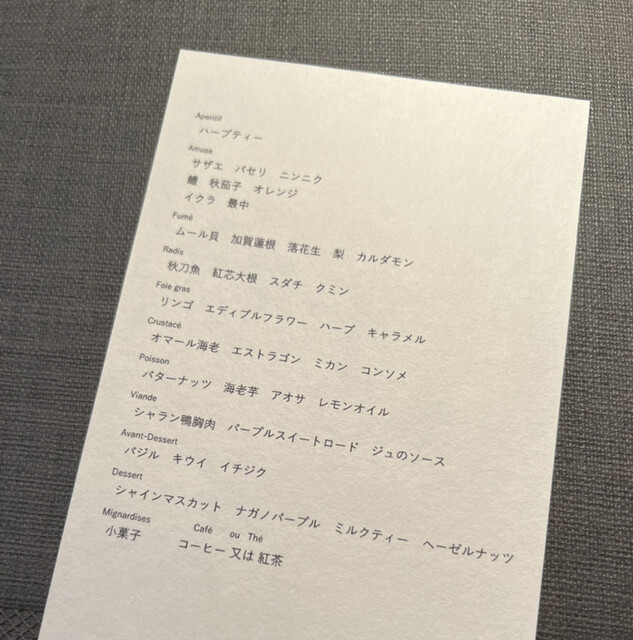 Aperitif
ハーブティー
Amuse
サザエ パセリ ニンニク
鱧 秋茄子 オレンジ
イクラ 最中
Fumé
ムール貝 加賀蓮根 落花生 梨 カルダモン
Radis
秋刀魚 紅芯大根 スダチ クミン
Foie gras
リンゴ エディブルフラワー ハーブ キャラメル
Crustacé
オマール海老 エストラゴン ミカン コンソメ
Poisson
バターナッツ 海老芋 アオサ レモンオイル
Viande
シャラン鴨胸肉 パープルスイートロード ジュのソース
Avant-Dessert
バジル キウイ イチジク
Dessert
シャインマスカット ナガノパープル ミルクティー ヘーゼルナッツ
Mignardises Café ou Thé
小菓子 コーヒー 又は 紅茶